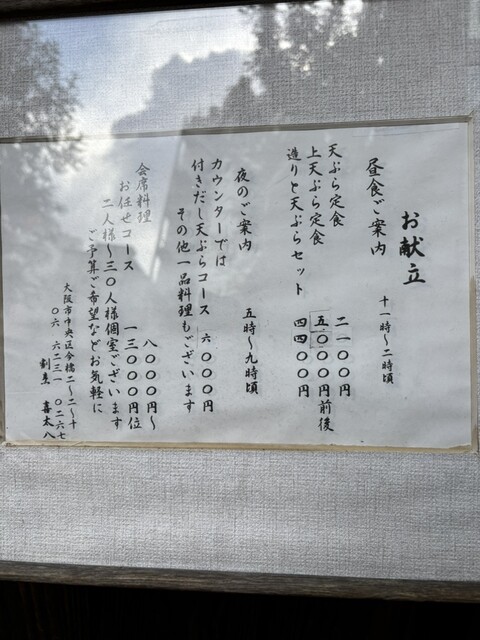 お献立
昼食ご案内 十一時～二時頃
天ぷら定食 二一〇〇円
上天ぷら定食 五〇〇〇円前後
造りと天ぷらセット 四四〇〇円
夜のご案内 五時～九時頃
カウンターでは
付きだし天ぷらコース 六〇〇〇円
その他一品料理もございます
会席料理 八〇〇〇円～
お任せコース 一三〇〇〇円位
二人様～三〇人様個室ございます
ご予算ご希望などお気軽に
大阪市中央区今橋二～二～十
〇六 六二三一 〇二六七
割烹 喜太八